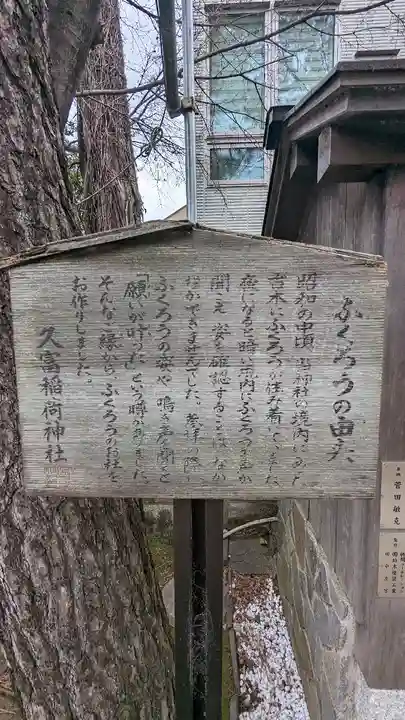 ふくろうの由来
昭和の中頃、当神社の境内にあった
古木にふくろうが住み着いていました。
夜になると暗い境内にふくろうの声が
聞こえ、姿を確認することは、なか
なかできませんでした。参拝の際に
ふくろうの姿や、鳴き声を聞くと
「願いが叶った」という噂がありました。
そんなご縁から、ふくろうのお社を
お作りしました。
久富稲荷神社
菅田敏克